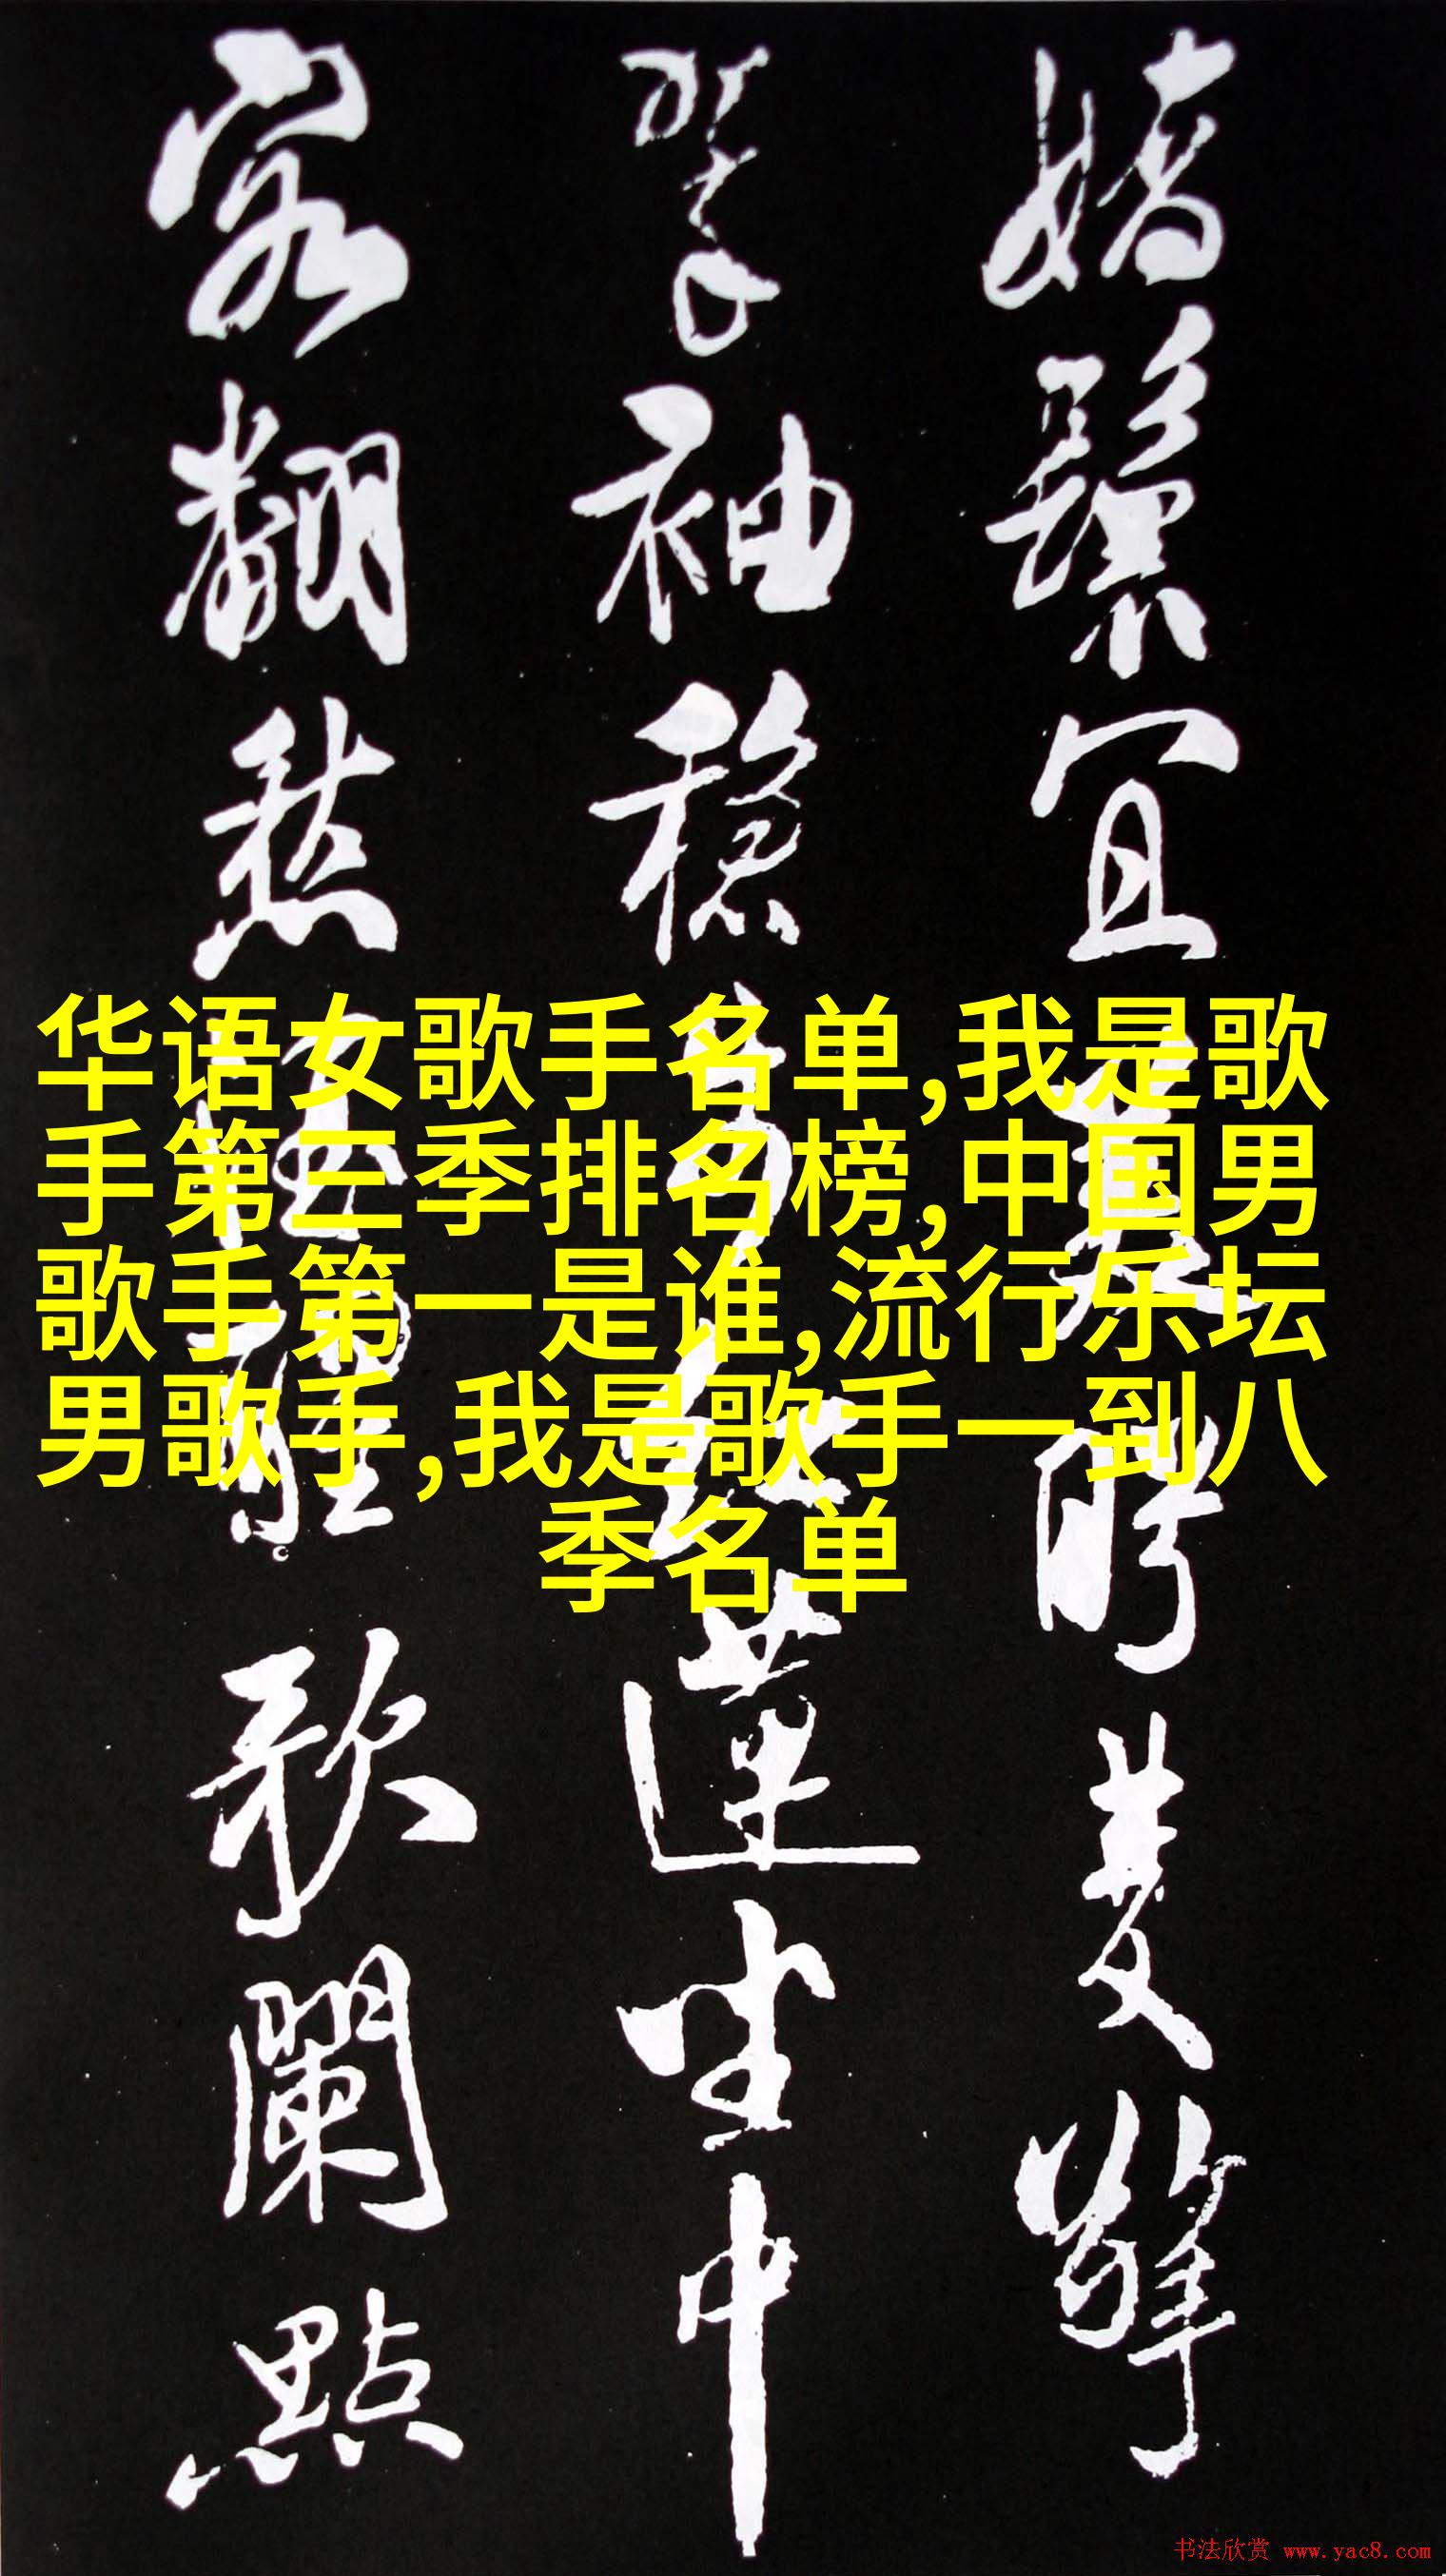 嬌鬟宜美盼雙擎
翠袖穩步紅蓮坐中
客翻愁酒醒歌闌點
华语女歌手名单,我是歌
手第三季排名榜,中国男
歌手第一是谁,流行乐坛
男歌手,我是歌手一到八
季名单
书法欣赏 www.yac8.com